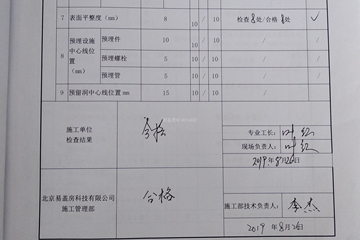 7 表面平整度(mm) 8 10 / 10 检查8处/合格8处 ✓
8 预埋设施中心线位置(mm)
预埋件 10 10 / 10
预埋螺栓 5 10 / 10
预埋管 5 10 / 10
9 预留洞中心线位置mm 15 10 / 10
施工单位
检查结果
合格
专业工长:
现场负责人:
2019年8月26日
北京易盖房科技有限公司
施工管理部
合格
施工部技术负责人: 李杰
2019年8月26日